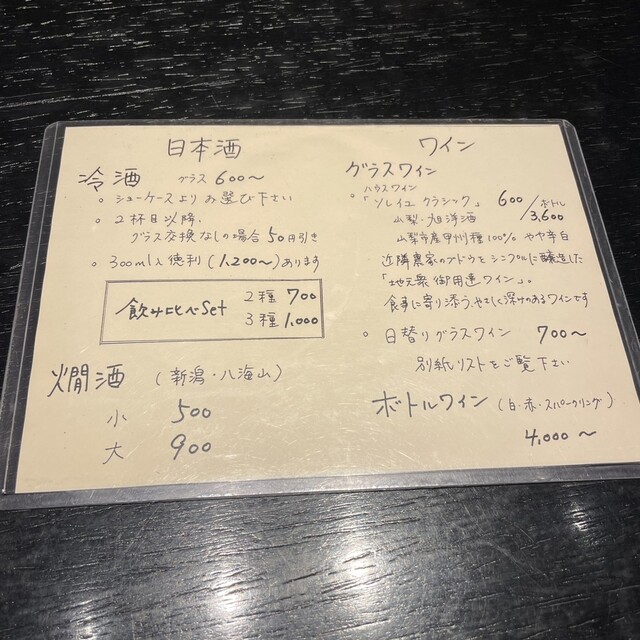 日本酒
冷酒 グラス 600〜
。ショーケースよりお選び下さい
。2杯目以降、
グラス交換なしの場合50円引き
。300ml入徳利(1,200〜)あります
飲み比べSet 2種 700
3種 1,000
燗酒 (新潟・八海山)
小 500
大 900
ワイン
グラスワイン
ハウスワイン
。「ソレイユ クラシック」 600/ボトル3,600
山梨・旭洋酒
山梨市産甲州種100% やや辛口
近隣農家のブドウをシンプルに醸造した
「地元衆御用達ワイン」。
食事に寄り添う、やさしく深みのあるワインです
。日替りグラスワイン 700〜
別紙リストをご覧下さい
ボトルワイン (白・赤・スパークリング)
4,000〜